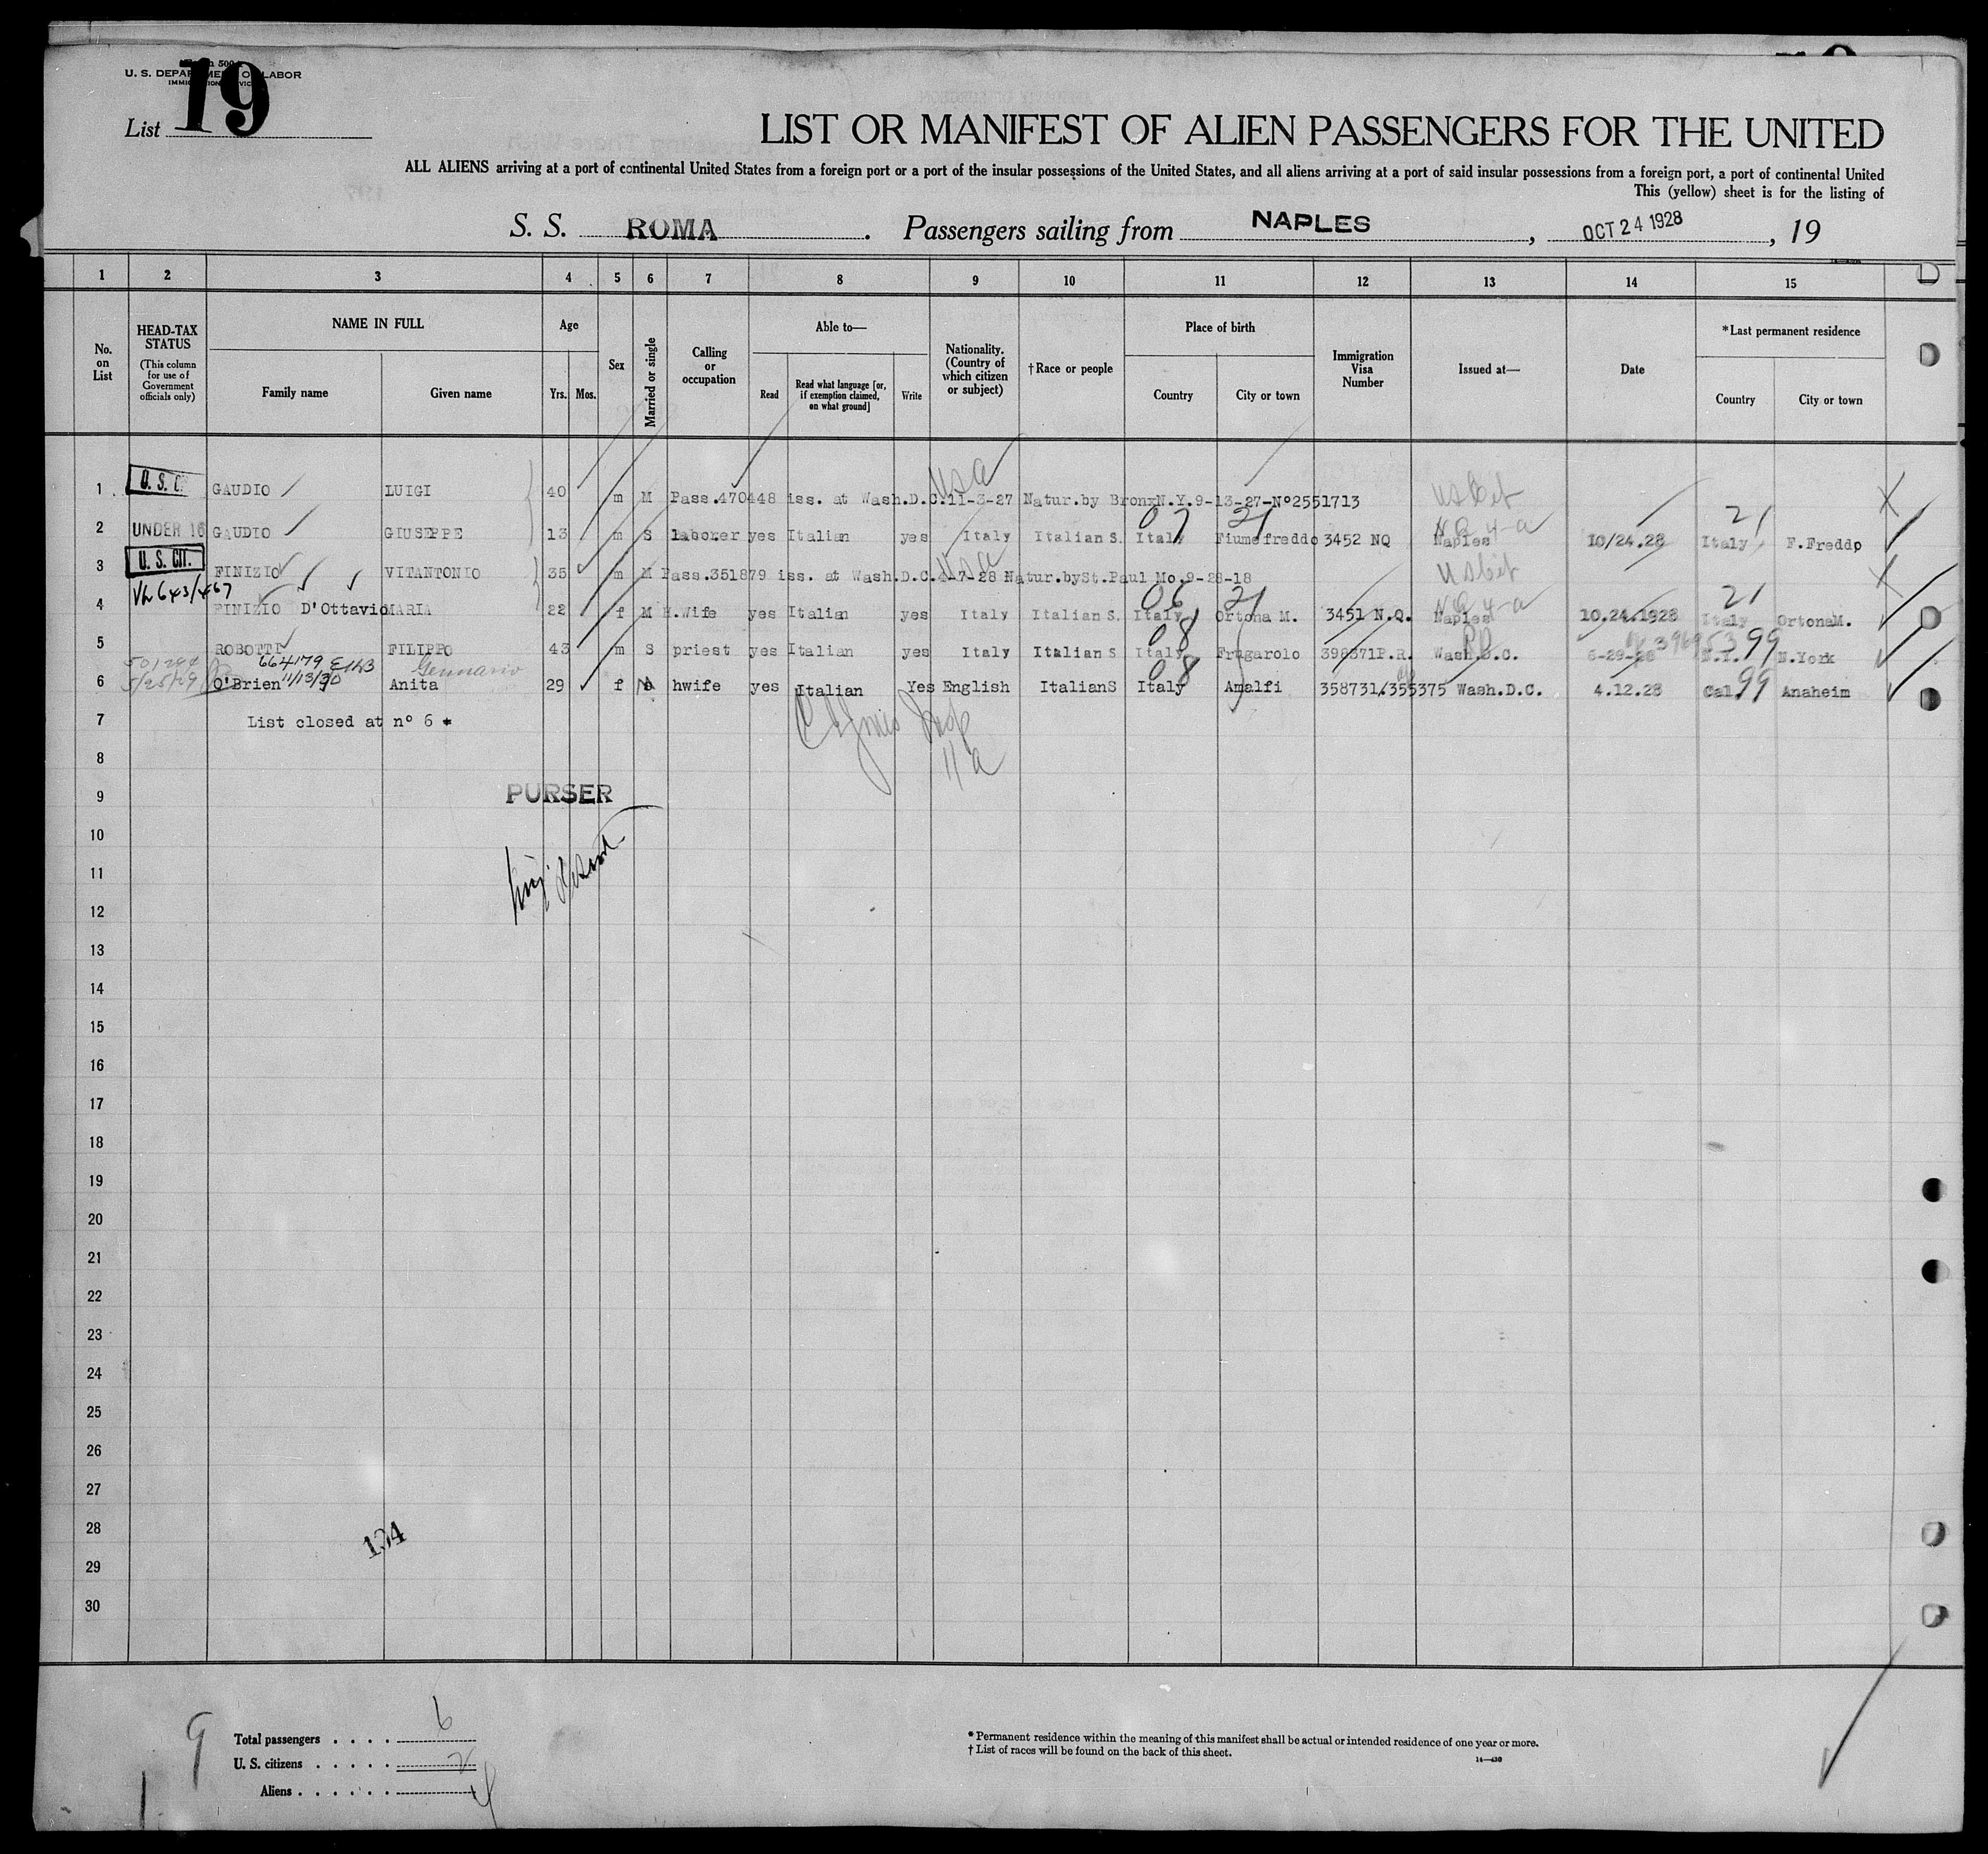 U. S. DEPARTMENT OF LABOR
List 19
LIST OR MANIFEST OF ALIEN PASSENGERS FOR THE UNITED
ALL ALIENS arriving at a port of continental United States from a foreign port or a port of the insular possessions of the United States, and all aliens arriving at a port of said insular possessions from a foreign port, a port of continental United
This (yellow) sheet is for the listing of
S. S. ROMA. Passengers sailing from NAPLES, OCT 24 1928, 19
1 2 3 4 5 6 7 8 9 10 11 12 13 14 15
No. on List
HEAD-TAX STATUS
(This column for use of Government officials only)
NAME IN FULL
Family name
Given name
Age
Yrs.
Mos.
Sex
Married or single
Calling or occupation
Able to—
Read
Read what language [or, if exemption claimed, on what ground]
Write
Nationality. (Country of which citizen or subject)
†Race or people
Place of birth
Country
City or town
Immigration Visa Number
Issued at—
Date
*Last permanent residence
Country
City or town
USA
1 U. S. C. GAUDIO LUIGI 40 m M Pass.470448 iss. at Wash.D.C.11-3-27 Natur.by BronxN.Y.9-13-27-Nº2551713 US Cit
07 21 NQ 4-a 21
2 UNDER 16 GAUDIO GIUSEPPE 13 m S laborer yes Italian yes Italy Italian S. Italy Fiumefreddo 3452 NQ Naples 10/24.28 Italy F.Freddo
USA
3 U. S. CIT. FINIZIO VITANTONIO 35 m M Pass.351879 iss. at Wash.D.C.4-7-28 Natur.bySt.Paul Mo.9-28-18 US Cit
VL 643/467 06 21 NQ 4-a 21
4 FINIZIO D'Ottavio MARIA 22 f M H.Wife yes Italian yes Italy Italian S. Italy Ortona M. 3451 N.Q. Naples 10.24.1928 Italy OrtonaM.
08 99
5 ROBOTTI FILIPPO 43 m S priest yes Italian yes Italy Italian S Italy Frugarolo 398371P.R. Wash.D.C. 6-29-28 N.Y. N.York
664179 Gennario 08 99
5/25/29 11/13/30
6 O'Brien Anita 29 f hwife yes Italian Yes English ItalianS Italy Amalfi 358731/355375 Wash.D.C. 4.12.28 Cal. Anaheim
7 List closed at nº 6 *
8
9 PURSER
10
11
12
13
14
15
16
17
18
19
20
21
22
23
24
25
26
27
28 134
29
30
9
Total passengers . . . . 6
U. S. citizens . . . . . 2
Aliens . . . . . . 4
* Permanent residence within the meaning of this manifest shall be actual or intended residence of one year or more.
† List of races will be found on the back of this sheet.
14—430